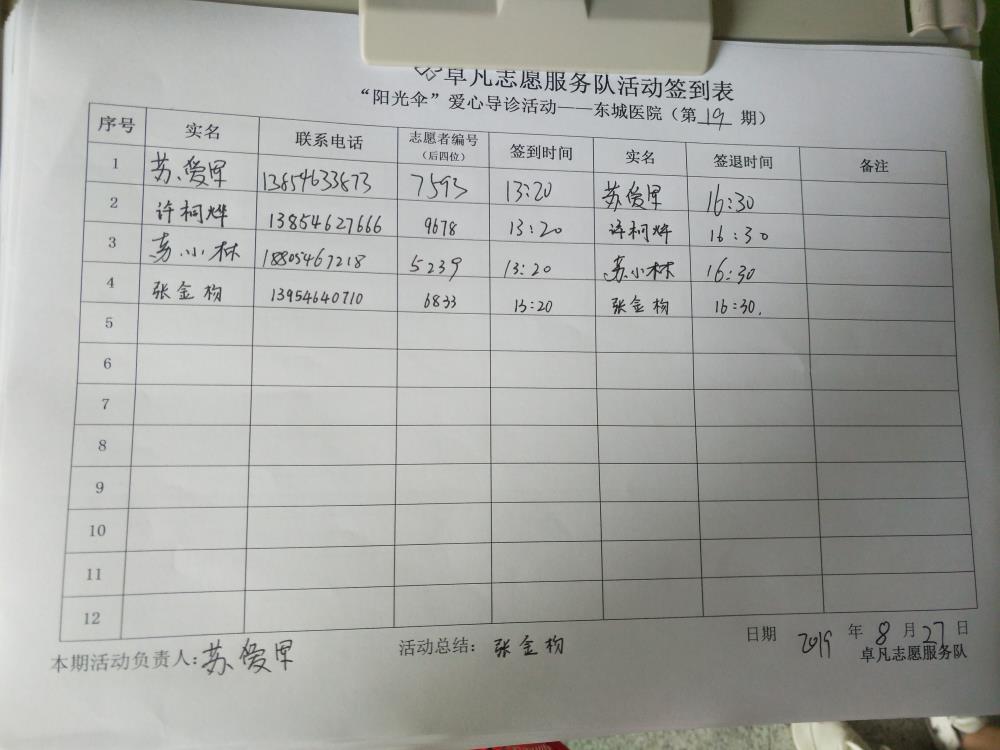 卓凡志愿服务队活动签到表
“阳光伞”爱心导诊活动——东城医院（第 19 期）
序号 实名 联系电话 志愿者编号（后四位） 签到时间 实名 签退时间 备注
1 苏爱军 13854633873 7593 13:20 苏爱军 16:30
2 许柯烨 13854627666 9678 13:20 许柯烨 16:30
3 苏小林 18805467218 5239 13:20 苏小林 16:30
4 张金枸 13954640710 6833 13:20 张金枸 16:30.
5
6
7
8
9
10
11
12
本期活动负责人:苏爱军 活动总结: 张金枸 日期 2019 年 8 月 27 日
卓凡志愿服务队